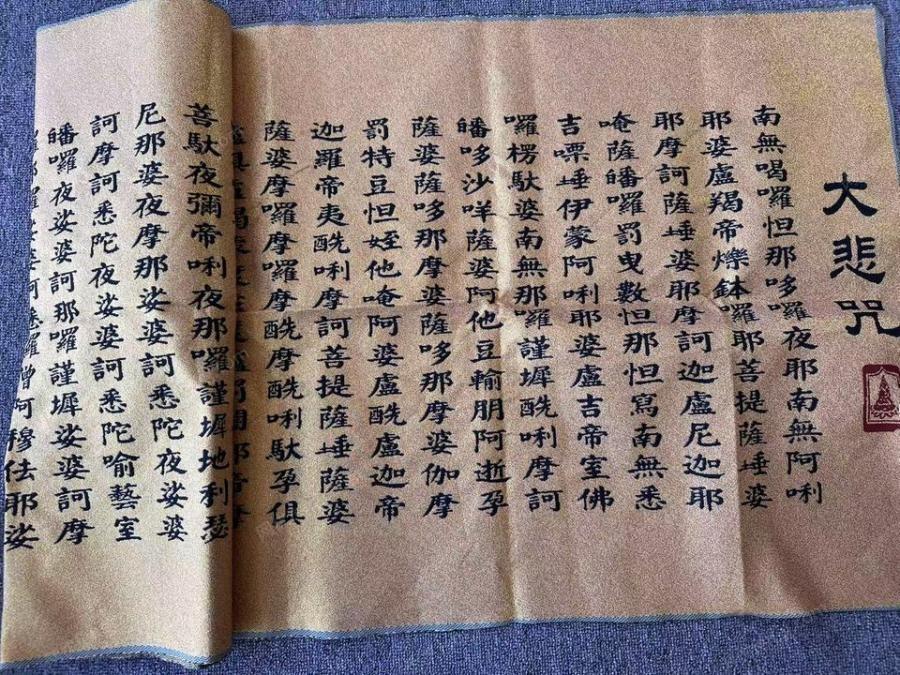 大悲咒
南無喝囉怛那哆囉夜耶南無阿唎
耶婆盧羯帝爍鉢囉耶菩提薩埵婆
耶摩訶薩埵婆耶摩訶迦盧尼迦耶
唵薩皤囉罰曳數怛那怛寫南無悉
吉嘌埵伊蒙阿唎耶婆盧吉帝室佛
囉楞馱婆南無那囉謹墀醯唎摩訶
皤哆沙咩薩婆阿他豆輸朋阿逝孕
薩婆薩哆那摩婆薩哆那摩婆伽摩
罰特豆怛姪他唵阿婆盧醯盧迦帝
迦羅帝夷醯唎摩訶菩提薩埵薩婆
薩婆摩囉摩囉摩醯摩醯唎馱孕俱
菩馱夜彌帝唎夜那囉謹墀地利瑟
尼那婆夜摩那娑婆訶悉陀夜娑婆
訶摩訶悉陀夜娑婆訶悉陀喻藝室
皤囉夜娑婆訶那囉謹墀娑婆訶摩
僧阿穆佉耶娑